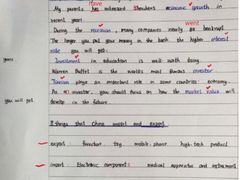 have
My parents has witnessed Shenzhen's economic growth in
recent years.
went
During the recession, many companies nearly go bankrupt.
The longer you put your money in the bank, the higher interest
rate you will get.
years
Investment in education is well worth being.
Warren Buffet is the world's most famous investor.
Tourism plays an important role in some countries' economy.
As investor, you should focus on how the market value will
you will get
develop in the future.
8 things that China import and export
export furniture toy mobile phone high-tech product
import Electronic component medical apparatus and instrument